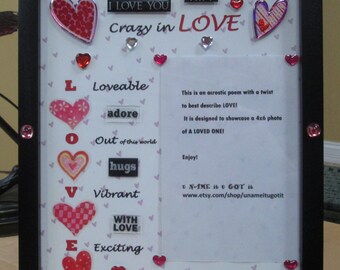 I LOVE YOU
Crazy in LOVE
L Loveable
adore
O Out of this world
hugs
V Vibrant
WITH LOVE
E Exciting
This is an acrostic poem with a twist
to best describe LOVE!
It is designed to showcase a 4x6 photo
of A LOVED ONE!
Enjoy!
U NAME it U GOT it
www.etsy.com/shop/unameitugotit